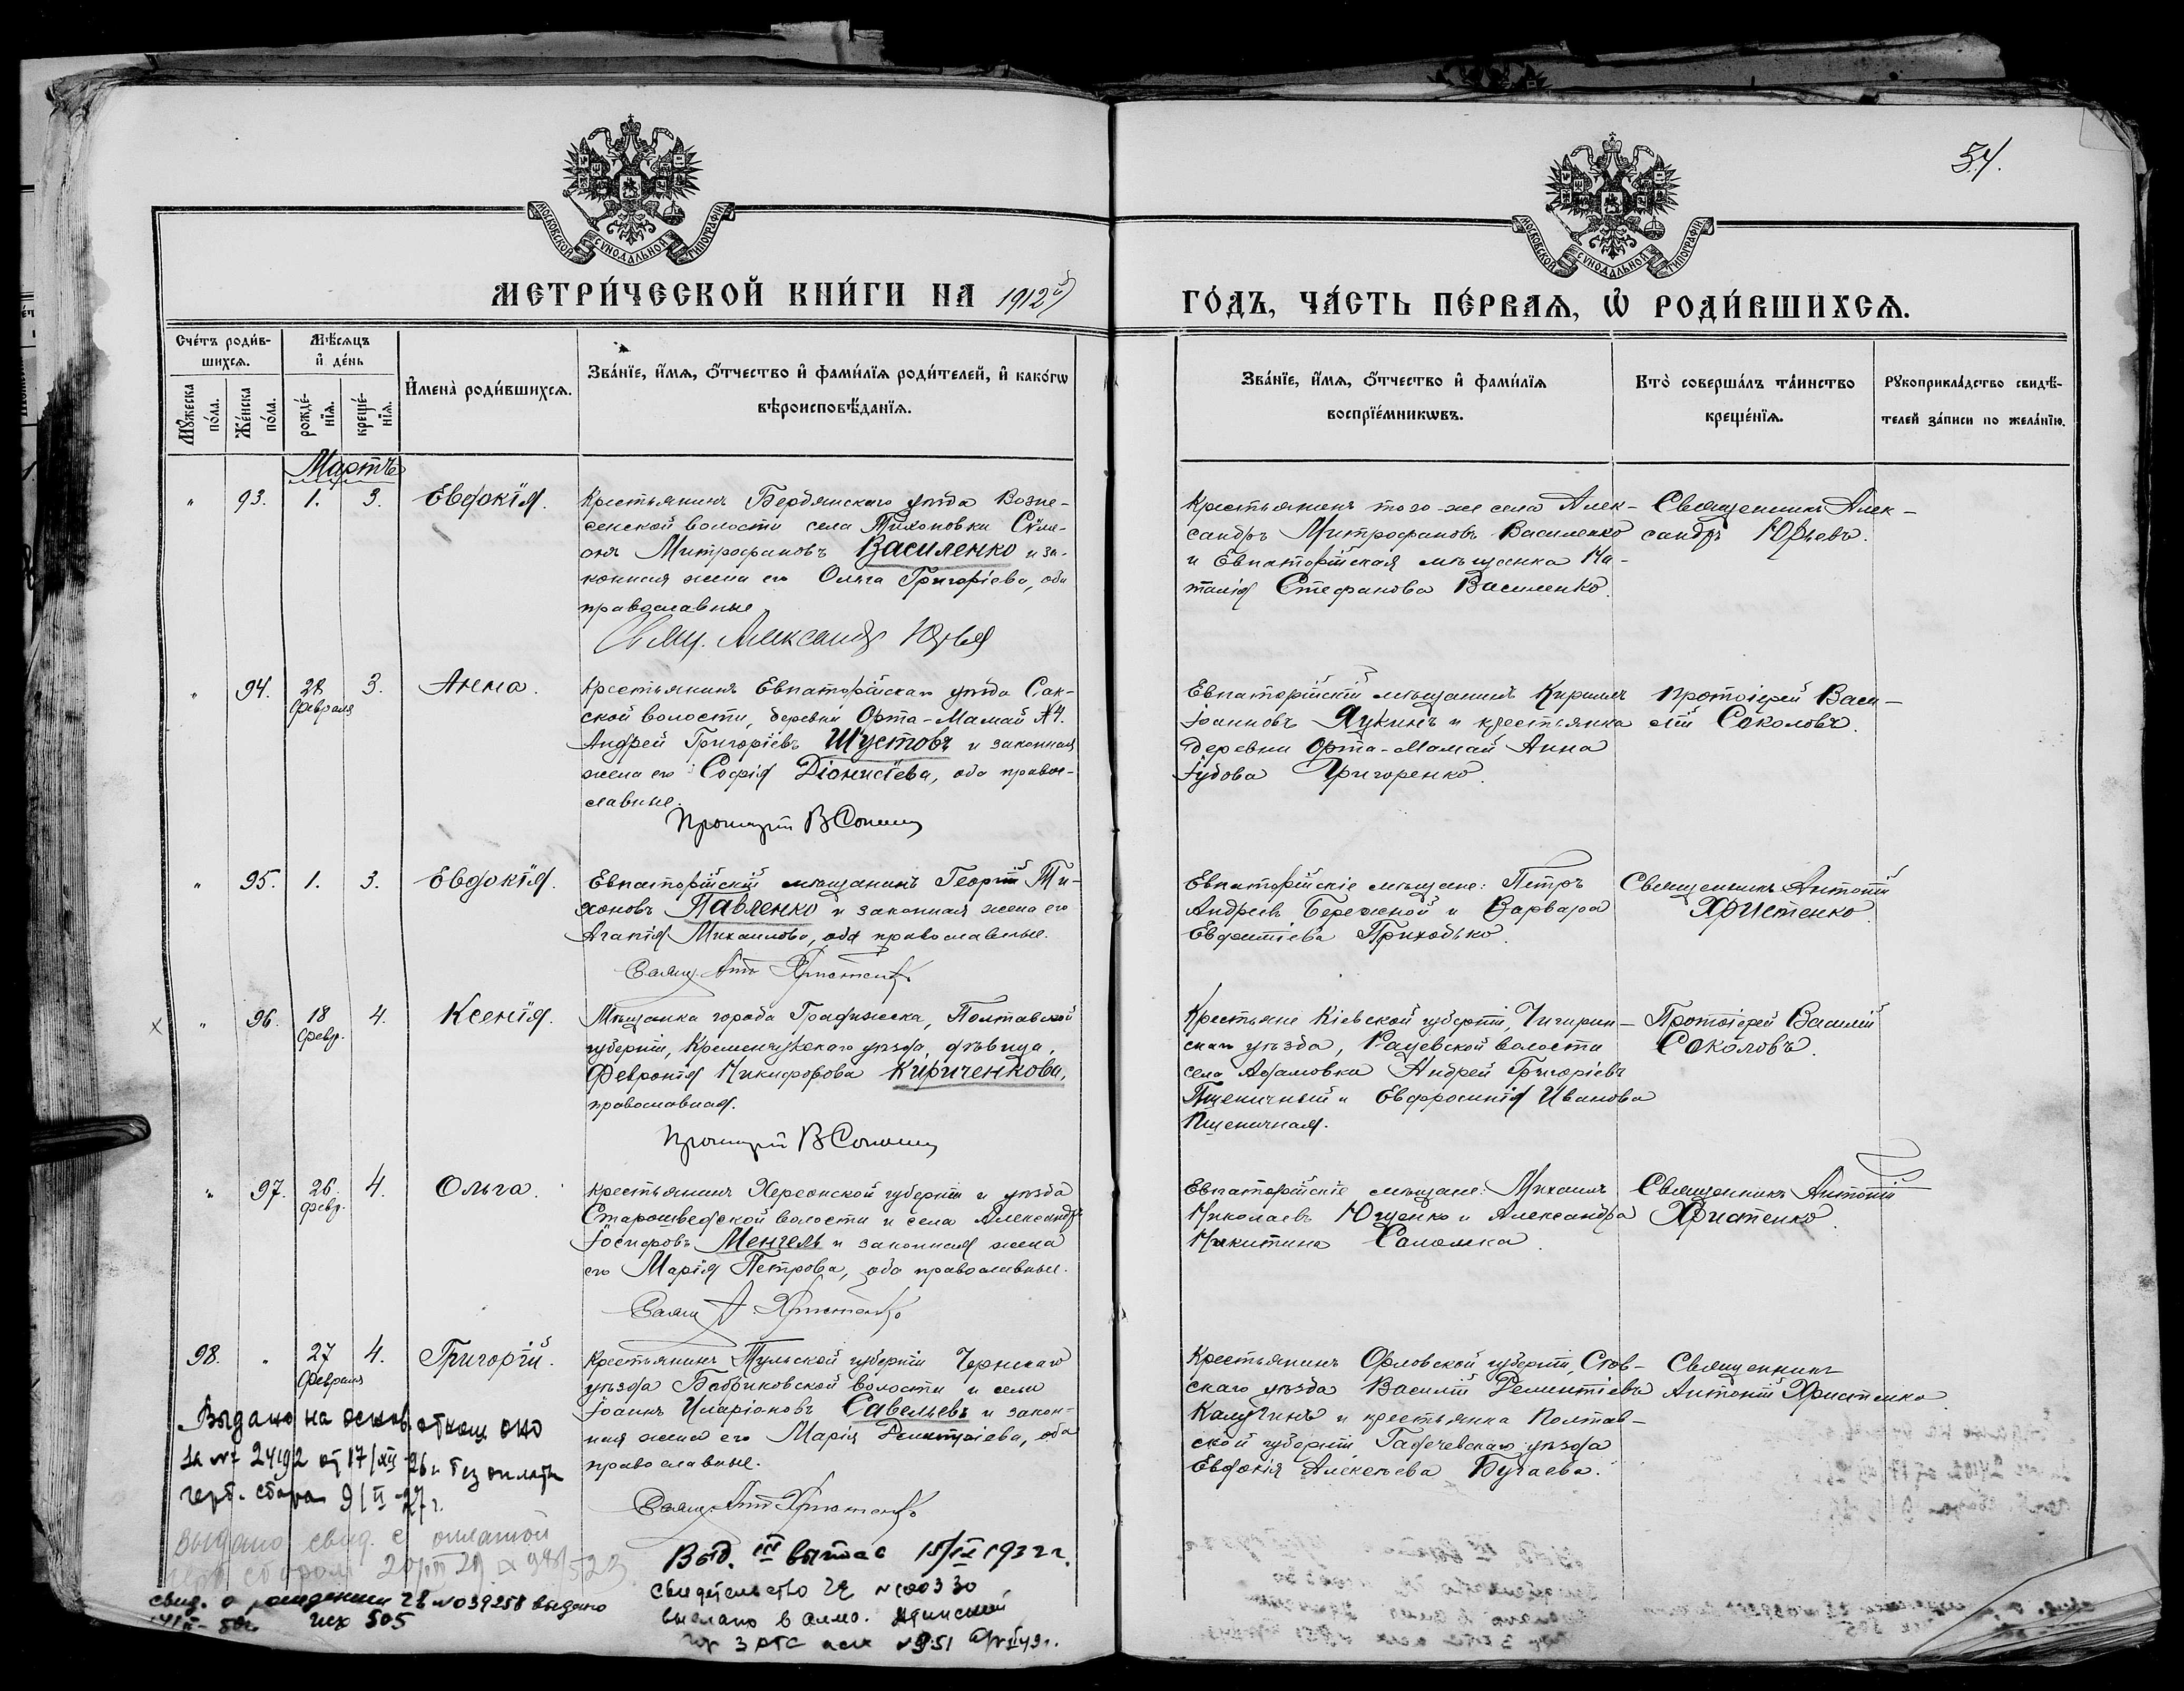 34.
МОСКОВСКОЙ СѴНОДАЛЬНОЙ ТИПОГРАФІИ
МОСКОВСКОЙ СѴНОДАЛЬНОЙ ТИПОГРАФІИ
МЕТРИ́ЧЕСКОЙ КНИ́ГИ НА 1912й
ГО́ДЪ, ЧА́СТЬ ПЕ́РВАѦ, Ѡ҆ РОДИ́ВШИХСѦ.
Сче́тъ роди́в-
шихсѧ.
Мꙋжеска по́ла.
Же́нска по́ла.
Мѣ́сѧцъ
и҆ де́нь
рожде́-
нїѧ.
креще́-
нїѧ.
И҆мена̀ роди́вшихсѧ.
Зва́нїе, и҆́мѧ, ѻ҆́тчество и҆ фами́лїѧ роди́телей, и҆ како́гѡ
вѣроисповѣ́данїѧ.
Зва́нїе, и҆́мѧ, ѻ҆́тчество и҆ фами́лїѧ
воспрїе́мникѡвъ.
Кто̀ соверша́лъ та́инство
креще́нїѧ.
Рꙋкоприкла́дство свидѣ́-
телей за́писи по жела́нїю.
Мартъ
" 93. 1. 3. Евдокія.
Крестьянинъ Бердянскаго уѣзда Возне-
сенской волости села Тихоновки Сѵме-
онъ Митрофановъ Василенко и за-
конная жена его Ольга Григоріева, оба
православные
Свящ. Александр Юрьев
Крестьянинъ того-же села Алек-
сандръ Митрофановъ Василенко
и Евпаторійская мѣщанка На-
талія Стефанова Василенко.
Священникъ Алек-
сандръ Юрьевъ.
" 94. 28 Февраля 3. Анна.
Крестьянинъ Евпаторійскаго уѣзда Сак-
ской волости, деревни Орта-Мамай №4.
Андрей Григоріевъ Шустовъ и законная
жена его Софія Діонисіева, оба право-
славные.
Протоіерей В Соколовъ
Евпаторійскій мѣщанинъ Кириллъ
Іоанновъ Яцкинъ и крестьянка
деревни Орта-Мамай Анна
Іудова Григоренко.
Протоіерей Васи-
лій Соколовъ.
" 95. 1. 3. Евдокія.
Евпаторійскій мѣщанинъ Георгій Ти-
хоновъ Павленко и законная жена его
Агапія Михаилова, оба православные.
Свящ. Ант Христенко
Евпаторійскіе мѣщане: Петръ
Андреевъ Бережной и Варвара
Евфиміева Приходько.
Священникъ Антоній
Христенко.
х " 96. 18 Февр. 4. Ксенія.
Мѣщанка города Градижска, Полтавской
губерніи, Кременчугскаго уѣзда, дѣвица,
Февронія Никифорова Кириченкова,
православная.
Протоіерей В Соколовъ
Крестьяне Кіевской губерніи, Чигирин-
скаго уѣзда, Рацевской волости
села Адамовки Андрей Григоріевъ
Пшеничный и Евфросинія Иванова
Пшеничная.
Протоіерей Василій
Соколовъ.
" 97. 26. Февр. 4. Ольга.
Крестьянинъ Херсонской губерніи и уѣзда
Старошведской волости и села Александръ
Іосифовъ Менгель и законная жена
его Марія Петрова, оба православные.
Свящ А Христенко
Евпаторійскіе мѣщане: Михаилъ
Николаевъ Ющенко и Александра
Никитина Саломка.
Священникъ Антоній
Христенко.
98. " 27 Февраля 4. Григорій.
Крестьянинъ Тульской губерніи Чернскаго
уѣзда Бобриковской волости и села
Іоаннъ Иларіоновъ Савельевъ и закон-
ная жена его Марія Димитріева, оба
православные.
Свящ. Ант Христенко
Крестьянинъ Орловской губерніи, Сѣв-
скаго уѣзда Василій Дементіевъ
Калугинъ и крестьянка Полтав-
ской губерніи Гадячевскаго уѣзда
Евдокія Алексѣева Бугаева.
Священникъ
Антоній Христенко.
Выдано на основ. отнош ОНО
за № 24192 от 17/XII-26 г. без оплаты
герб. сбора 9/II-27 г.
Выдано свид. с оплатой
герб сбором
свид. о рождении № 039258 выдано
исх 505
Выд. III выпись 15/IX 1932 г.
свидетельство № 100330
выслано в
ЗАГС исх № 951